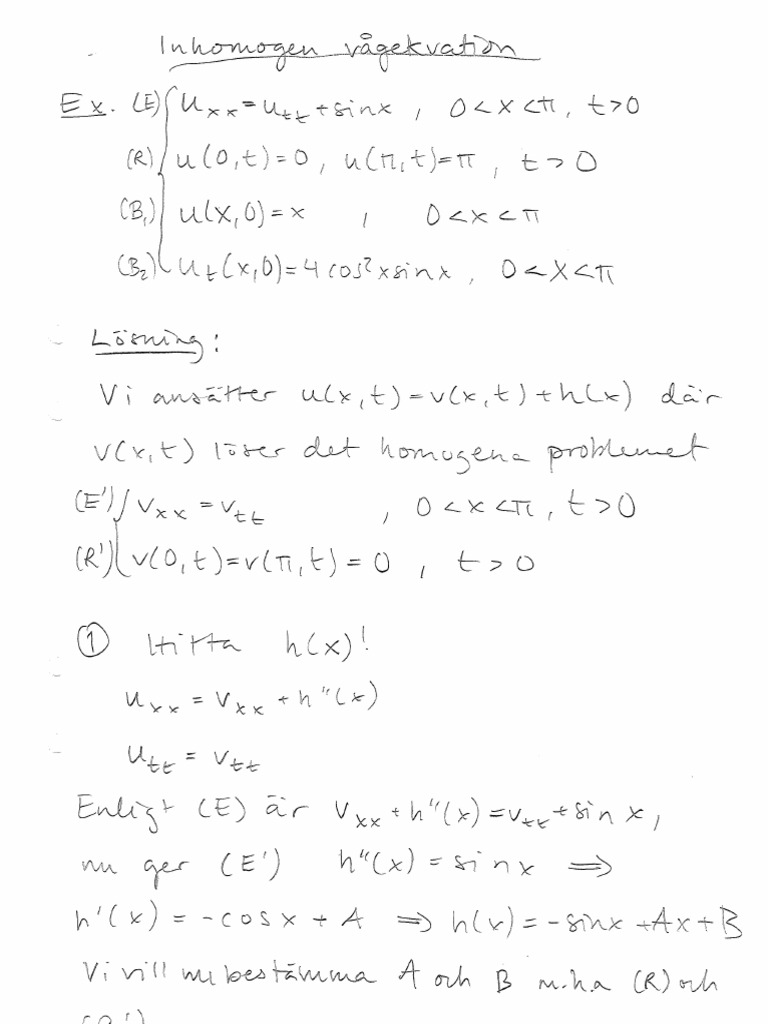 Inhomogen vågekvation
Ex. (E) u_xx = u_tt + sin x , 0 < x < π, t > 0
(R) u(0,t) = 0, u(π,t) = π, t > 0
(B₁) u(x,0) = x , 0 < x < π
(B₂) u_t(x,0) = 4 cos²x sin x, 0 < x < π
Lösning:
Vi ansätter u(x,t) = v(x,t) + h(x) där
v(x,t) löser det homogena problemet
(E') v_xx = v_tt , 0 < x < π, t > 0
(R') v(0,t) = v(π,t) = 0 , t > 0
① Hitta h(x)!
u_xx = v_xx + h"(x)
u_tt = v_tt
Enligt (E) är v_xx + h"(x) = v_tt + sin x,
nu ger (E') h"(x) = sin x ⇒
h'(x) = -cos x + A ⇒ h(x) = -sin x + Ax + B
Vi vill nu bestämma A och B m.h.a (R) och
(R')